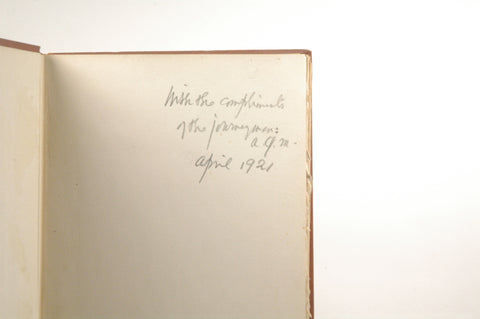 With the compliments
of the journeyman:
A. G. M.
April 1921